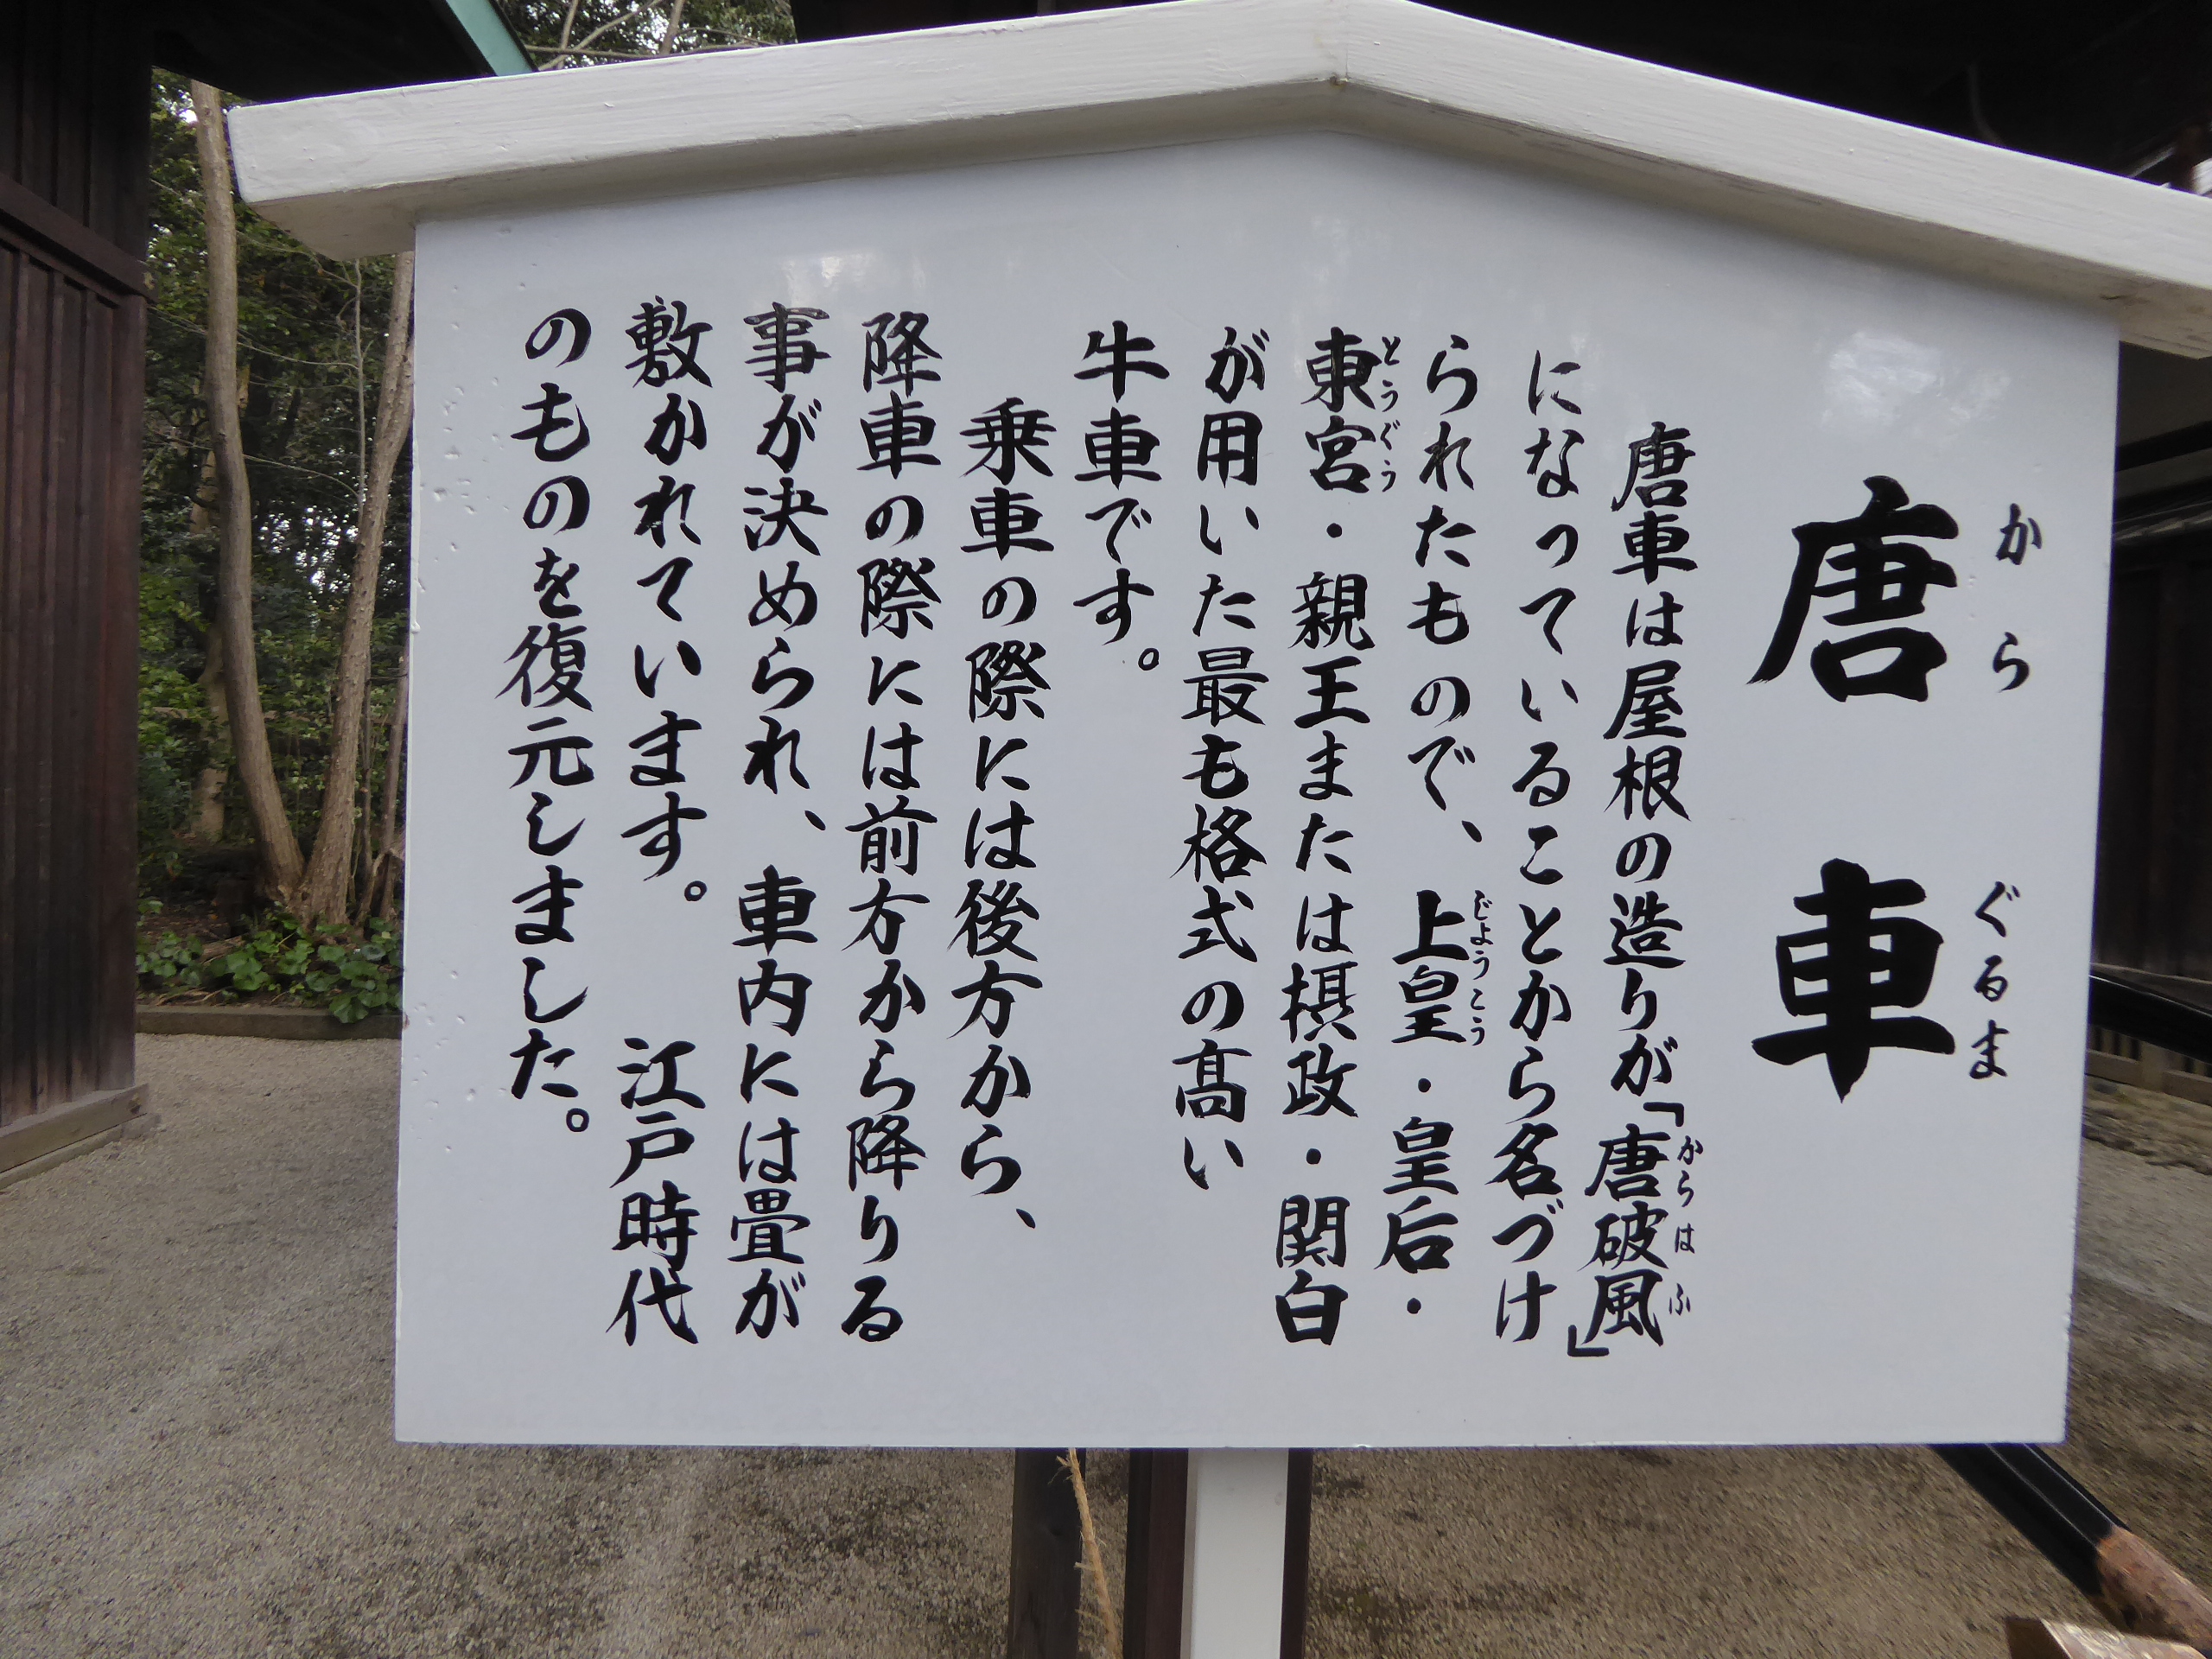 唐車
からぐるま
唐車は屋根の造りが「唐破風」
からはふ
になっていることから名づけ
られたもので、上皇・皇后・
じょうこう
東宮・親王または摂政・関白
とうぐう
が用いた最も格式の髙い
牛車です。
乗車の際には後方から、
降車の際には前方から降りる
事が決められ、車内には畳が
敷かれています。 江戸時代
のものを復元しました。